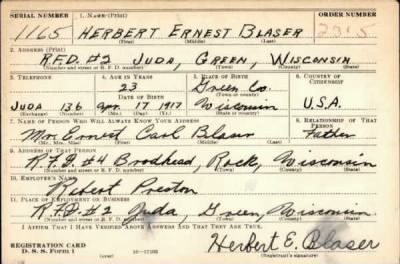 SERIAL NUMBER 1. NAME (Print) ORDER NUMBER
1165 HERBERT ERNEST BLASER 2315
(First) (Middle) (Last)
2. ADDRESS (Print)
R.F.D. #2 JUDA, GREEN, WISCONSIN
(Number and street or R. F. D. number) (Town) (County) (State)
3. TELEPHONE 4. AGE IN YEARS 5. PLACE OF BIRTH 6. COUNTRY OF CITIZENSHIP
23 Green Co.
DATE OF BIRTH (Town or county)
JUDA 136 Apr. 17 1917 Wisconsin U.S.A.
(Exchange) (Number) (Mo.) (Day) (Yr.) (State or country)
7. NAME OF PERSON WHO WILL ALWAYS KNOW YOUR ADDRESS 8. RELATIONSHIP OF THAT PERSON
Mr. Ernest Carl Blaser Father
(Mr., Mrs., Miss) (First) (Middle) (Last)
9. ADDRESS OF THAT PERSON
R.F.D. #4 Brodhead, Rock, Wisconsin
(Number and street or R. F. D. number) (Town) (County) (State)
10. EMPLOYER'S NAME
Robert Preston
11. PLACE OF EMPLOYMENT OR BUSINESS
R.F.D. #2 Juda, Green, Wisconsin.
(Number and street or R. F. D. number) (Town) (County) (State)
I AFFIRM THAT I HAVE VERIFIED ABOVE ANSWERS AND THAT THEY ARE TRUE.
REGISTRATION CARD
D. S. S. Form 1 (over) 16-17105
Herbert E. Blaser
(Registrant's signature)